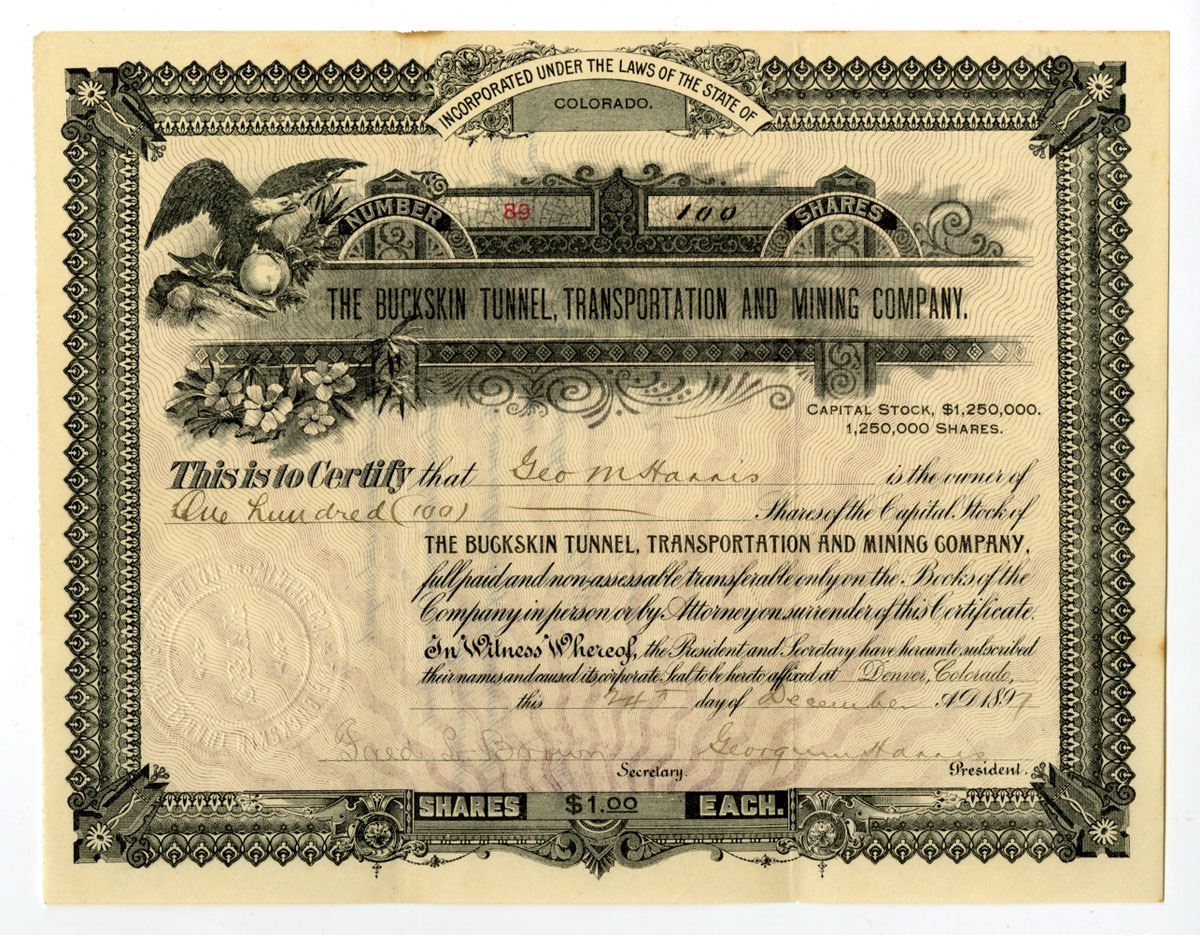 INCORPORATED UNDER THE LAWS OF THE STATE OF
COLORADO.
NUMBER 89 100 SHARES
THE BUCKSKIN TUNNEL, TRANSPORTATION AND MINING COMPANY.
CAPITAL STOCK, $1,250,000.
1,250,000 SHARES.
This is to Certify that Geo M Harris is the owner of
One hundred (100) Shares of the Capital Stock of
THE BUCKSKIN TUNNEL, TRANSPORTATION AND MINING COMPANY,
full paid and non-assessable transferable only on the Books of the
Company in person or by Attorney on surrender of this Certificate.
In Witness Whereof, the President and Secretary have hereunto subscribed
their names and caused its corporate Seal to be hereto affixed at Denver, Colorado,
this 24th day of December A.D. 1897
Fred L. Brown George M Harris
Secretary. President.
SHARES $1.00 EACH.